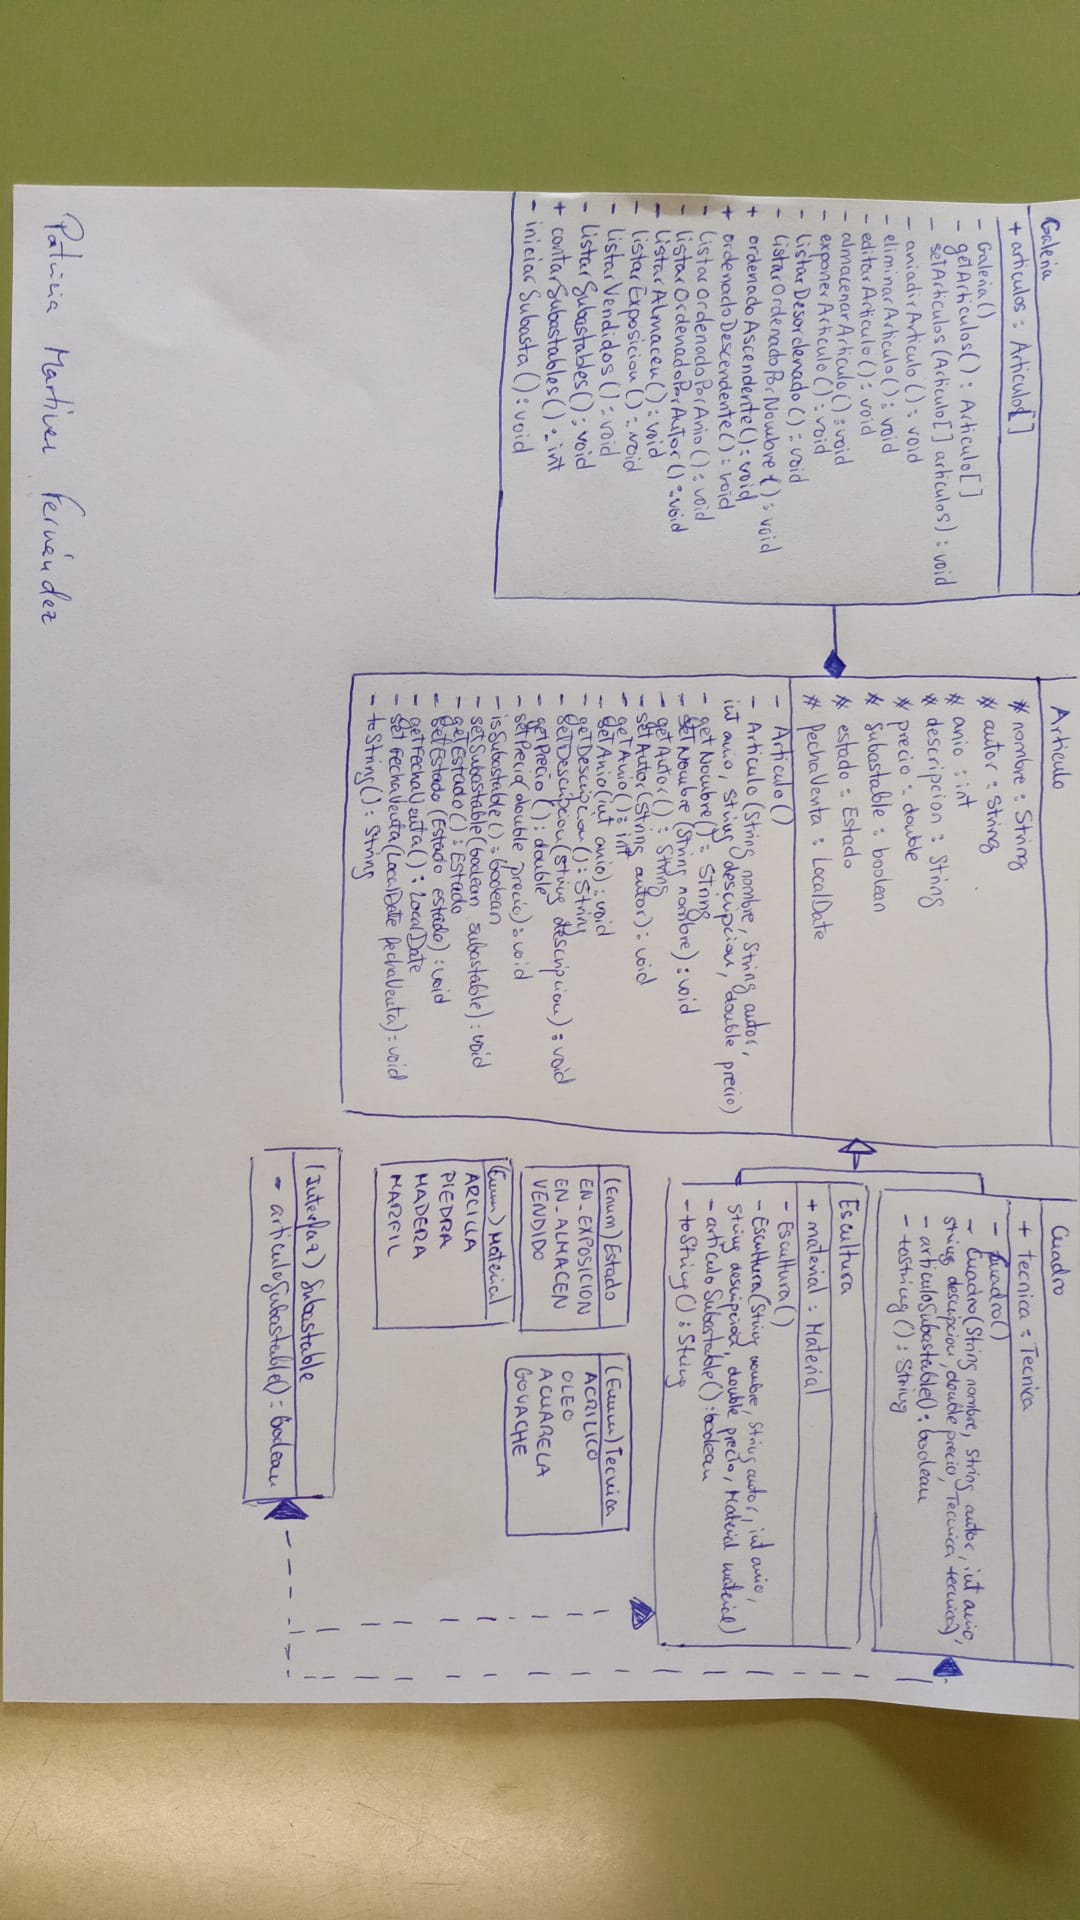 Galeria
+ articulos : Articulo[]
- Galeria()
- getArticulos() : Articulo[]
- setArticulos (Articulo[] articulos) : void
- aniadirArticulo() : void
- eliminarArticulo() : void
- editarArticulo() : void
- almacenarArticulo() : void
- exponerArticulo() : void
- listarDesordenado() : void
- listarOrdenadoPorNombre() : void
+ ordenadoAscendente() : void
+ ordenadoDescendente() : void
- listarOrdenadoPorAnio() : void
- listarOrdenadoPorAutor() : void
- listarAlmacen() : void
- listarExposicion() : void
- listarVendidos() : void
- listarSubastables() : void
+ contarSubastables() : int
- iniciarSubasta() : void
Articulo
# nombre : String
# autor : String
# anio : int
# descripcion : String
# precio : double
# subastable : boolean
# estado : Estado
# fechaVenta : LocalDate
- Articulo()
- Articulo (String nombre, String autor,
int anio, String descripcion, double precio)
- getNombre() : String
- setNombre (String nombre) : void
- getAutor() : String
- setAutor(String autor) : void
- getAnio() : int
- setAnio(int anio) : void
- getDescripcion() : String
- setDescripcion(String descripcion) : void
- getPrecio() : double
- setPrecio(double precio) : void
- isSubastable() : boolean
- setSubastable(boolean subastable) : void
- getEstado() : Estado
- setEstado (Estado estado) : void
- getFechaVenta() : LocalDate
- setFechaVenta(LocalDate fechaVenta) : void
- toString() : String
Cuadro
+ tecnica : Tecnica
- Cuadro()
- Cuadro(String nombre, String autor, int anio,
string descripcion, double precio, Tecnica tecnica)
- articuloSubastable() : boolean
- toString() : String
Escultura
+ material : Material
- Escultura()
- Escultura(String nombre, String autor, int anio,
String descripcion, double precio, Material material)
- articuloSubastable() : boolean
- toString() : String
(Enum) Estado
EN_EXPOSICION
EN_ALMACEN
VENDIDO
(Enum) Tecnica
ACRILICO
OLEO
ACUARELA
GOUACHE
(Enum) Material
ARCILLA
PIEDRA
MADERA
MARFIL
(Interfaz) Subastable
- articuloSubastable() : boolean
Patricia Martinez Fernández